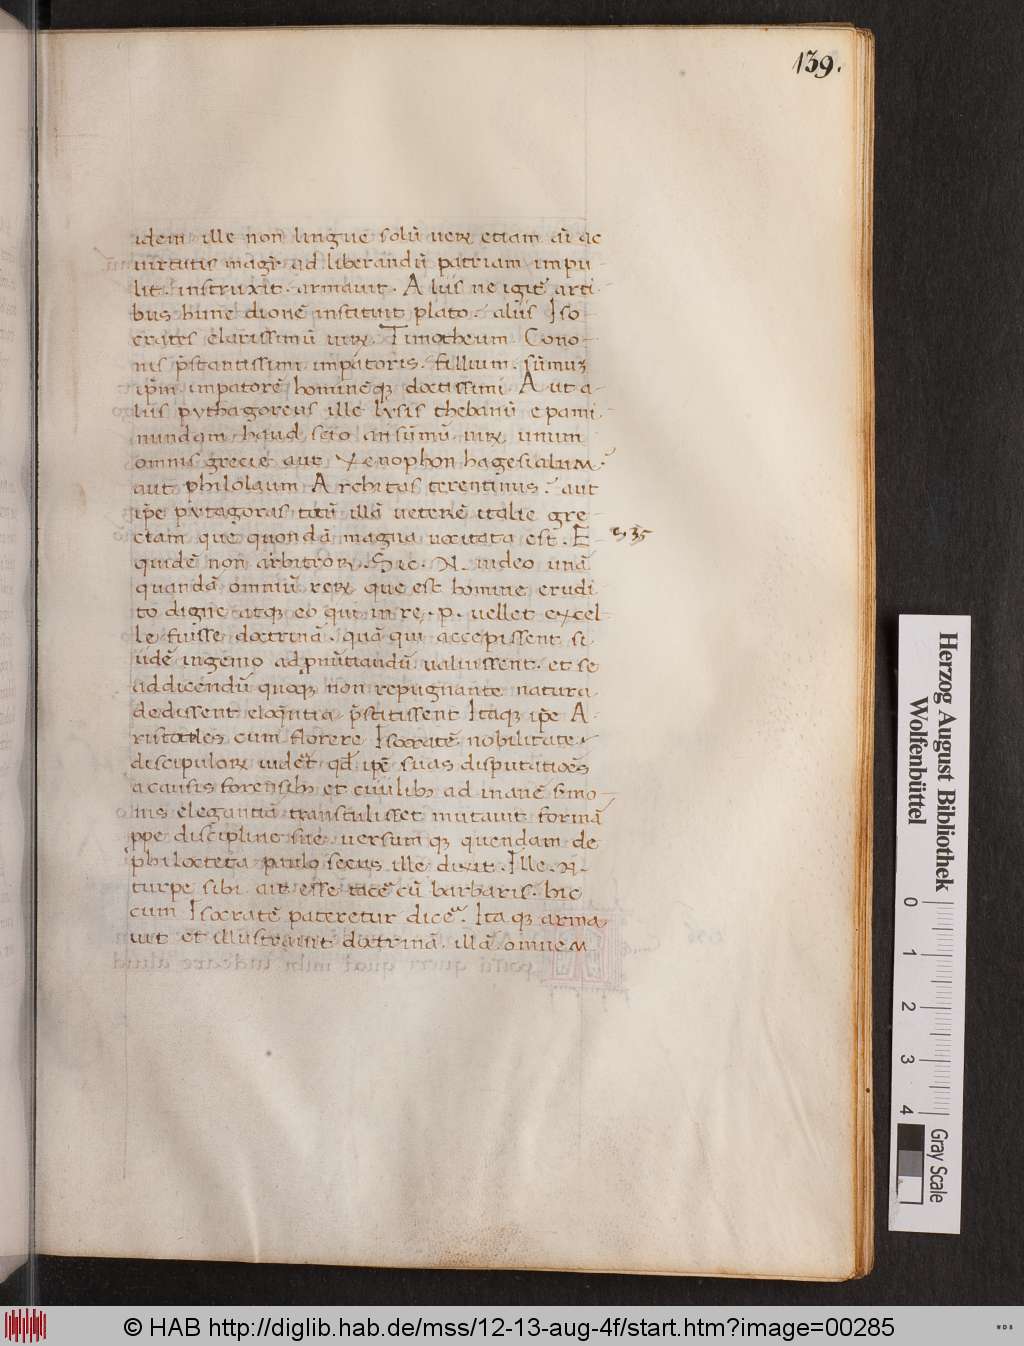 139.
idem ille non lingue solũ ueꝝ etiam aĩ ac
uirtutis magr̃ ad liberandũ patriam impu
lit. instruxit. armauit. Aliis ne igit᷑ arti
bus hunc dionẽ instituit plato. aliis Iso
crates clarissimũ uiꝝ. Timotheum Cono
nis p̃stantissimi impatoris. fillium. sũmuʒ
ip̃m impatorẽ hominẽqʒ doctissimi Aut a
lius pythagoreus ille lysis thebanũ epami
nundam haud scio an sũmũ uiꝝ unum
omnis grecie aut Xenophon hagesialum
aut philolaum Architas terentinus. aut
ip̃e pytagoras totũ illã ueterẽ italie gre
ciam que quondã magna uocitata est. E
235
quidẽ non arbitror. Sic. N. uideo unã
quandã omniũ reꝝ que est homine erudi
to digne atqʒ eo qui in re. p. uellet excel
le fuisse doctrinã. quã qui accepissent si
udẽ ingenio ad pnũtiandũ ualuissent. et se
ad dicendũ quoqʒ non repugnante natura
dedissent eloq̃ntia p̃stitissent Itaqʒ ip̃e A
ristotiles cum florere Isocratẽ nobilitate
discipuloꝝ uidet᷑ qđ ip̃e suas disputatioẽs
a causis forensibʒ et ciuilibʒ ad inanẽ s̃mo
nis elegantiã transtulisset mutauit formã
ppe discipline sue uersum qʒ quendam de
philocteta paulo secus ille dixit. Ille. N.
turpe sibi ait esse tacẽ cũ barbaris. hic
cum Isocratẽ pateretur dicẽ. Itaqʒ arma
uit et illustrauit doctrinã. illã omnem
Herzog August Bibliothek
Wolfenbüttel
0 1 2 3 4
Gray Scale
© HAB http://diglib.hab.de/mss/12-13-aug-4f/start.htm?image=00285